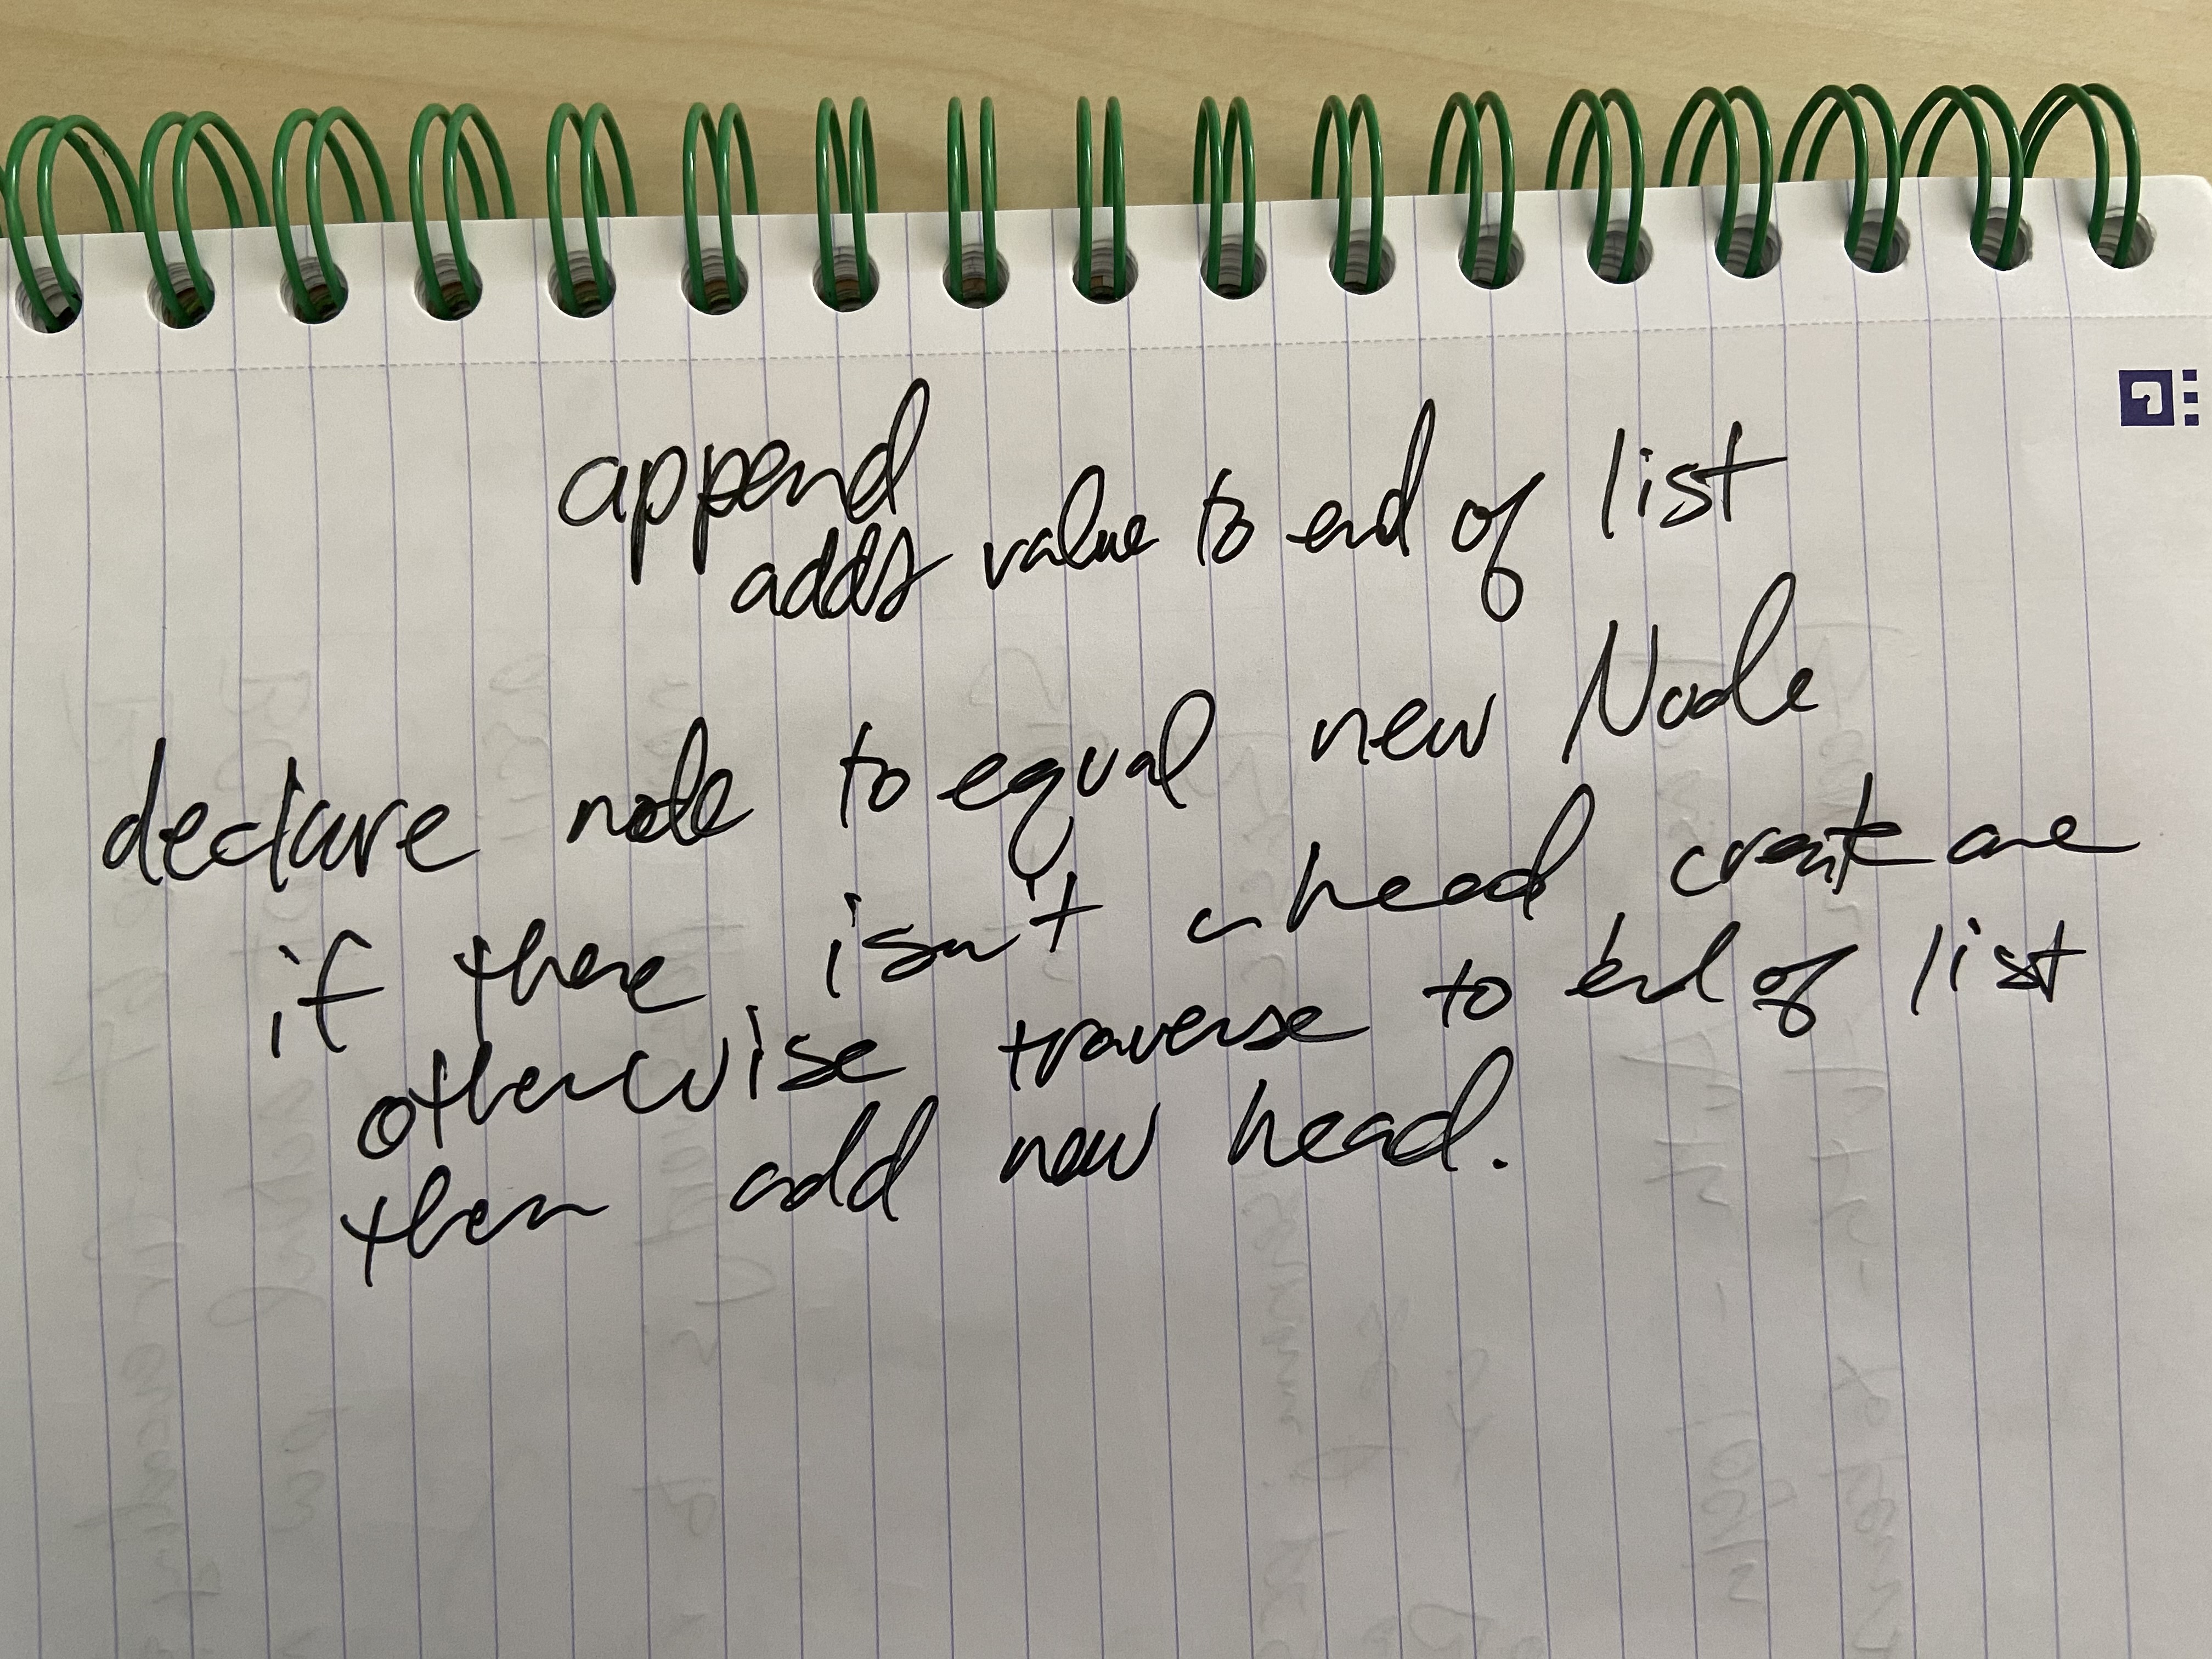 append
adds value to end of list
declare node to equal new Node
if there isn't a head create one
otherwise traverse to end of list
then add new head.